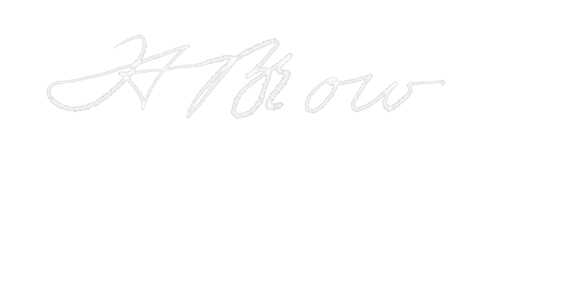 H Brow